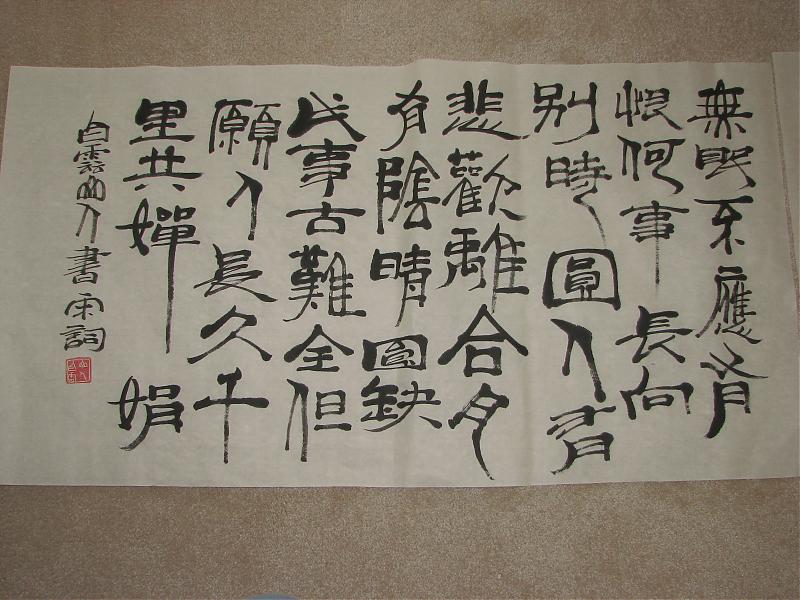 無眠不應有
恨何事長向
別時圓人有
悲歡離合月
有陰晴圓缺
此事古難全但
願人長久千
里共嬋娟
白雲人書宋詞